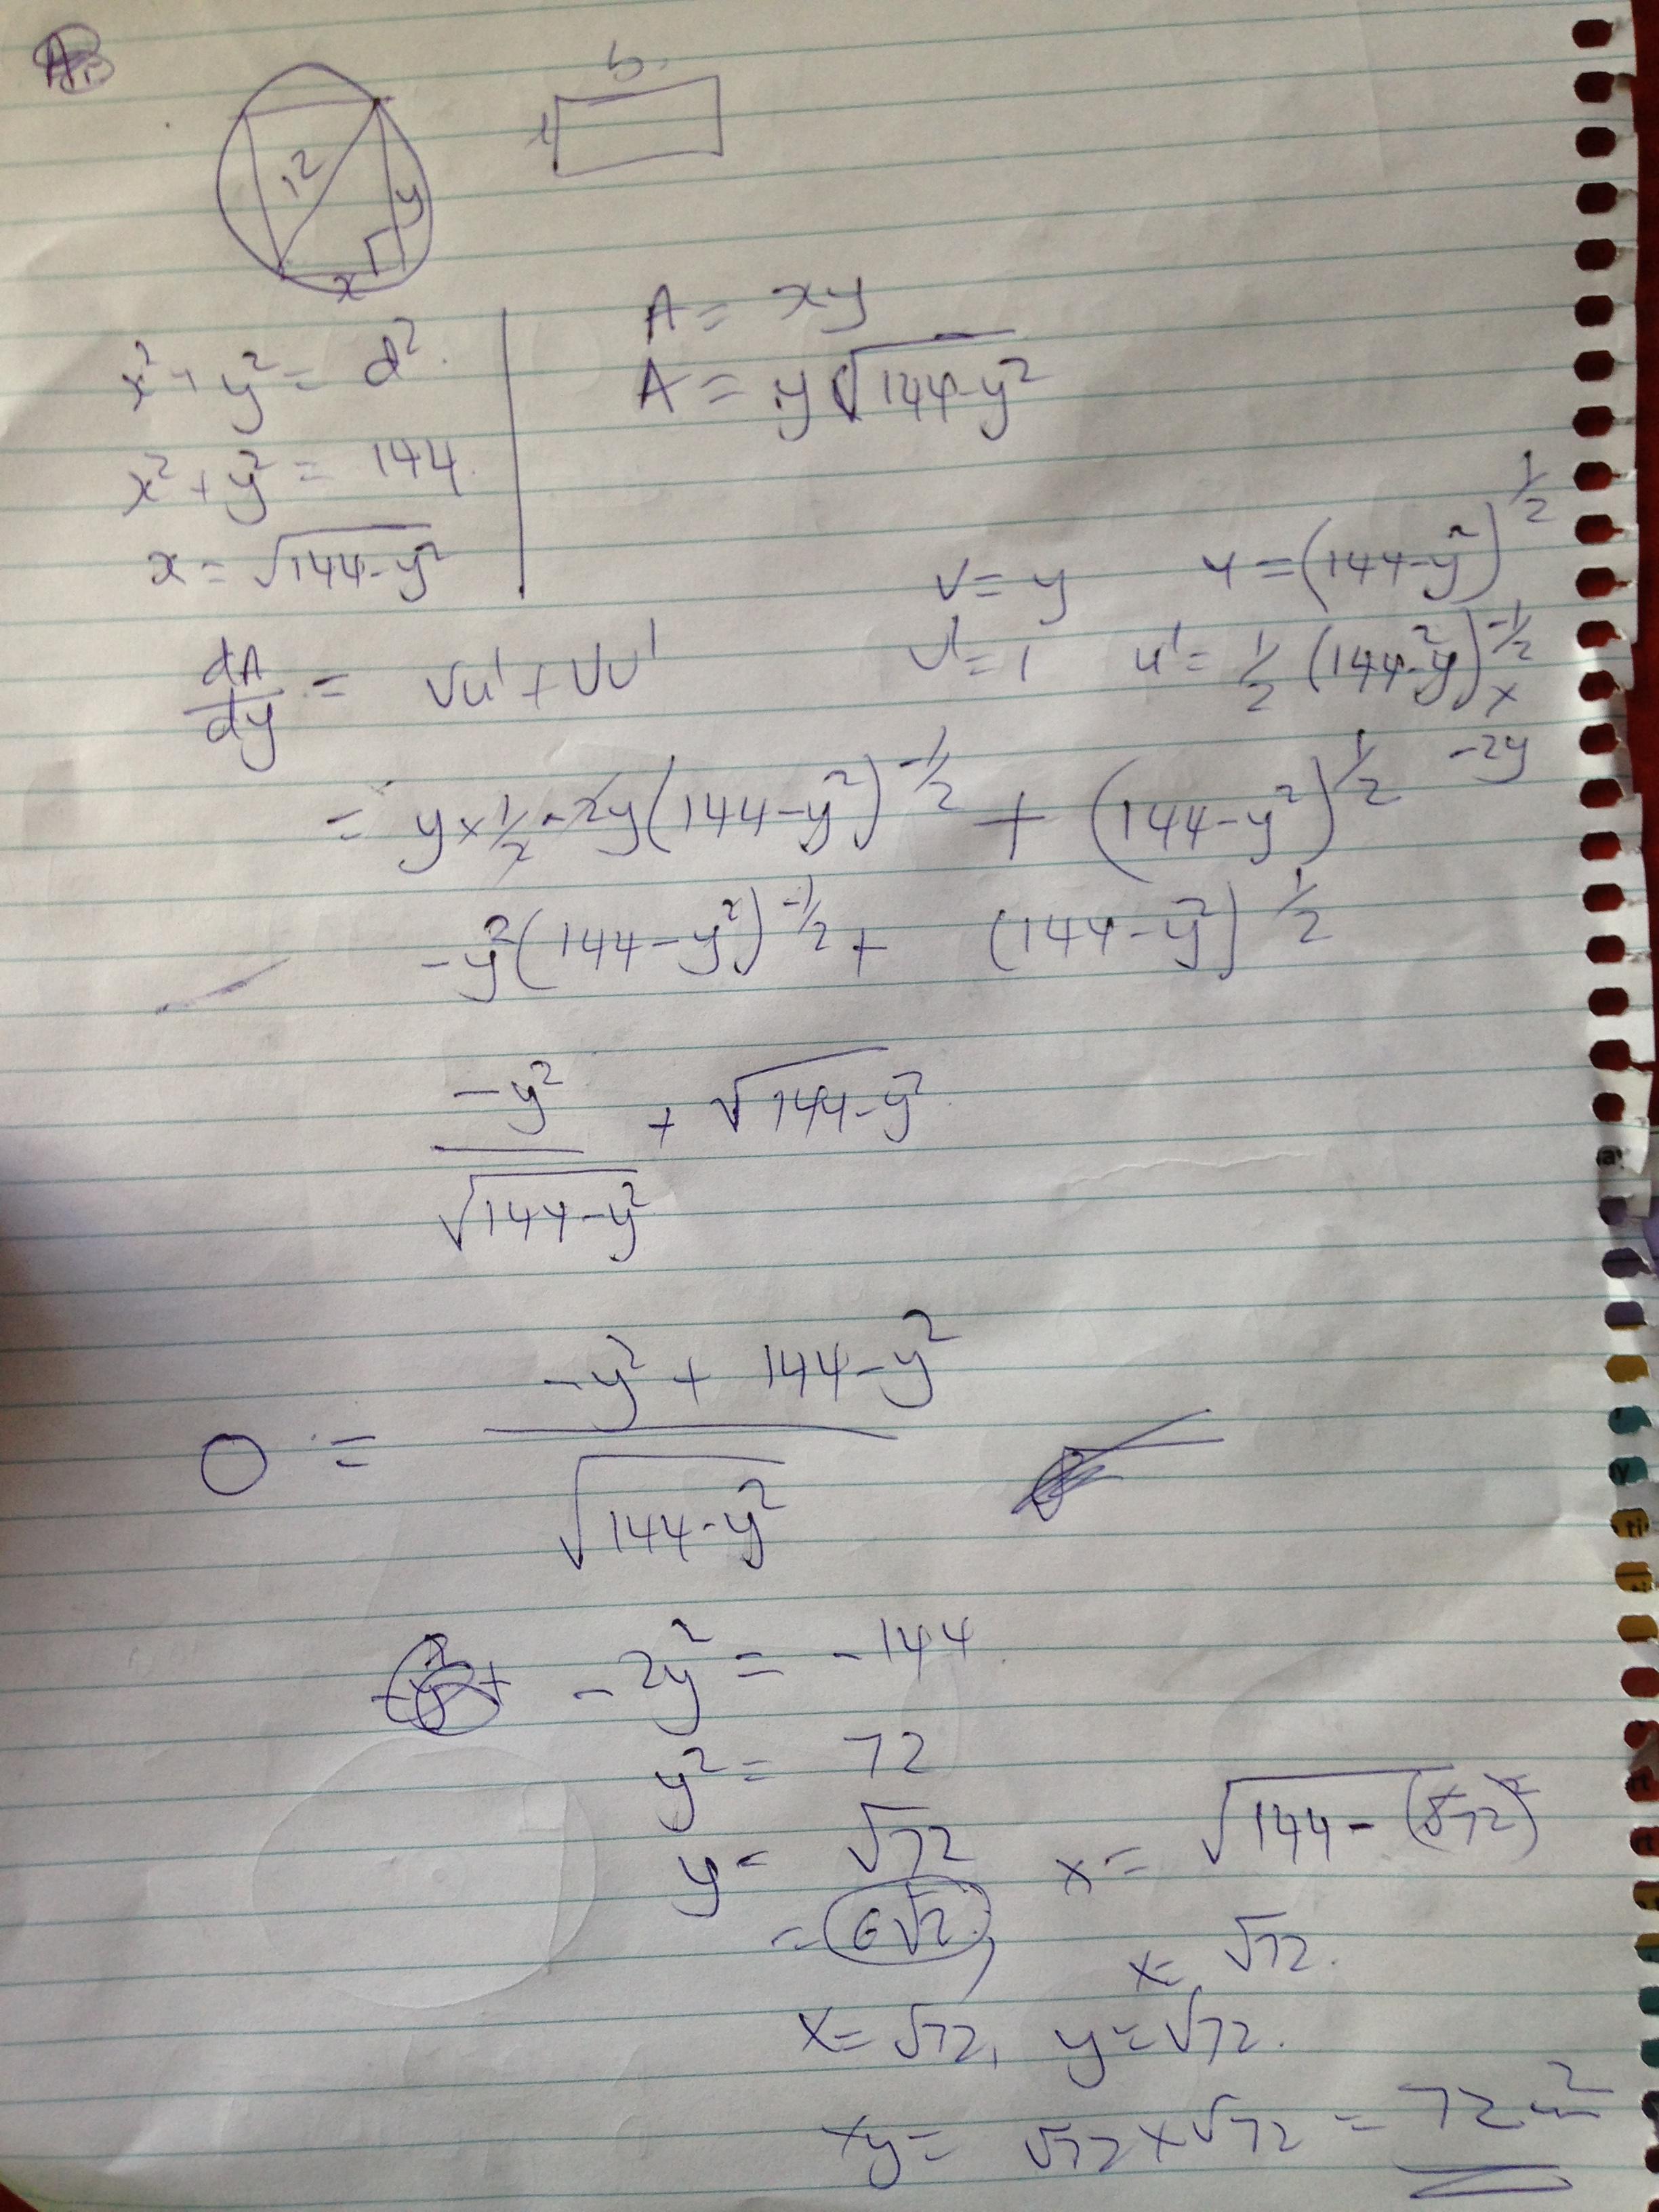 b
12
y
x
x² + y² = d²
x² + y² = 144
x = √144-y²
A = xy
A = y√144-y²
v = y u = (144-y²)^1/2
v' = 1 u' = 1/2 (144-y²)^-1/2 ×
-2y
dA/dy = vu' + uv'
= y × 1/2 - 2y(144-y²)^-1/2 + (144-y²)^1/2
-y²(144-y²)^-1/2 + (144-y²)^1/2
-y²/√144-y² + √144-y²
0 = -y² + 144-y²/√144-y²
-2y² = -144
y² = 72
y = √72 x = √144-(√72)²
= 6√2 x = √72
x = √72, y = √72
xy = √72 × √72 = 72